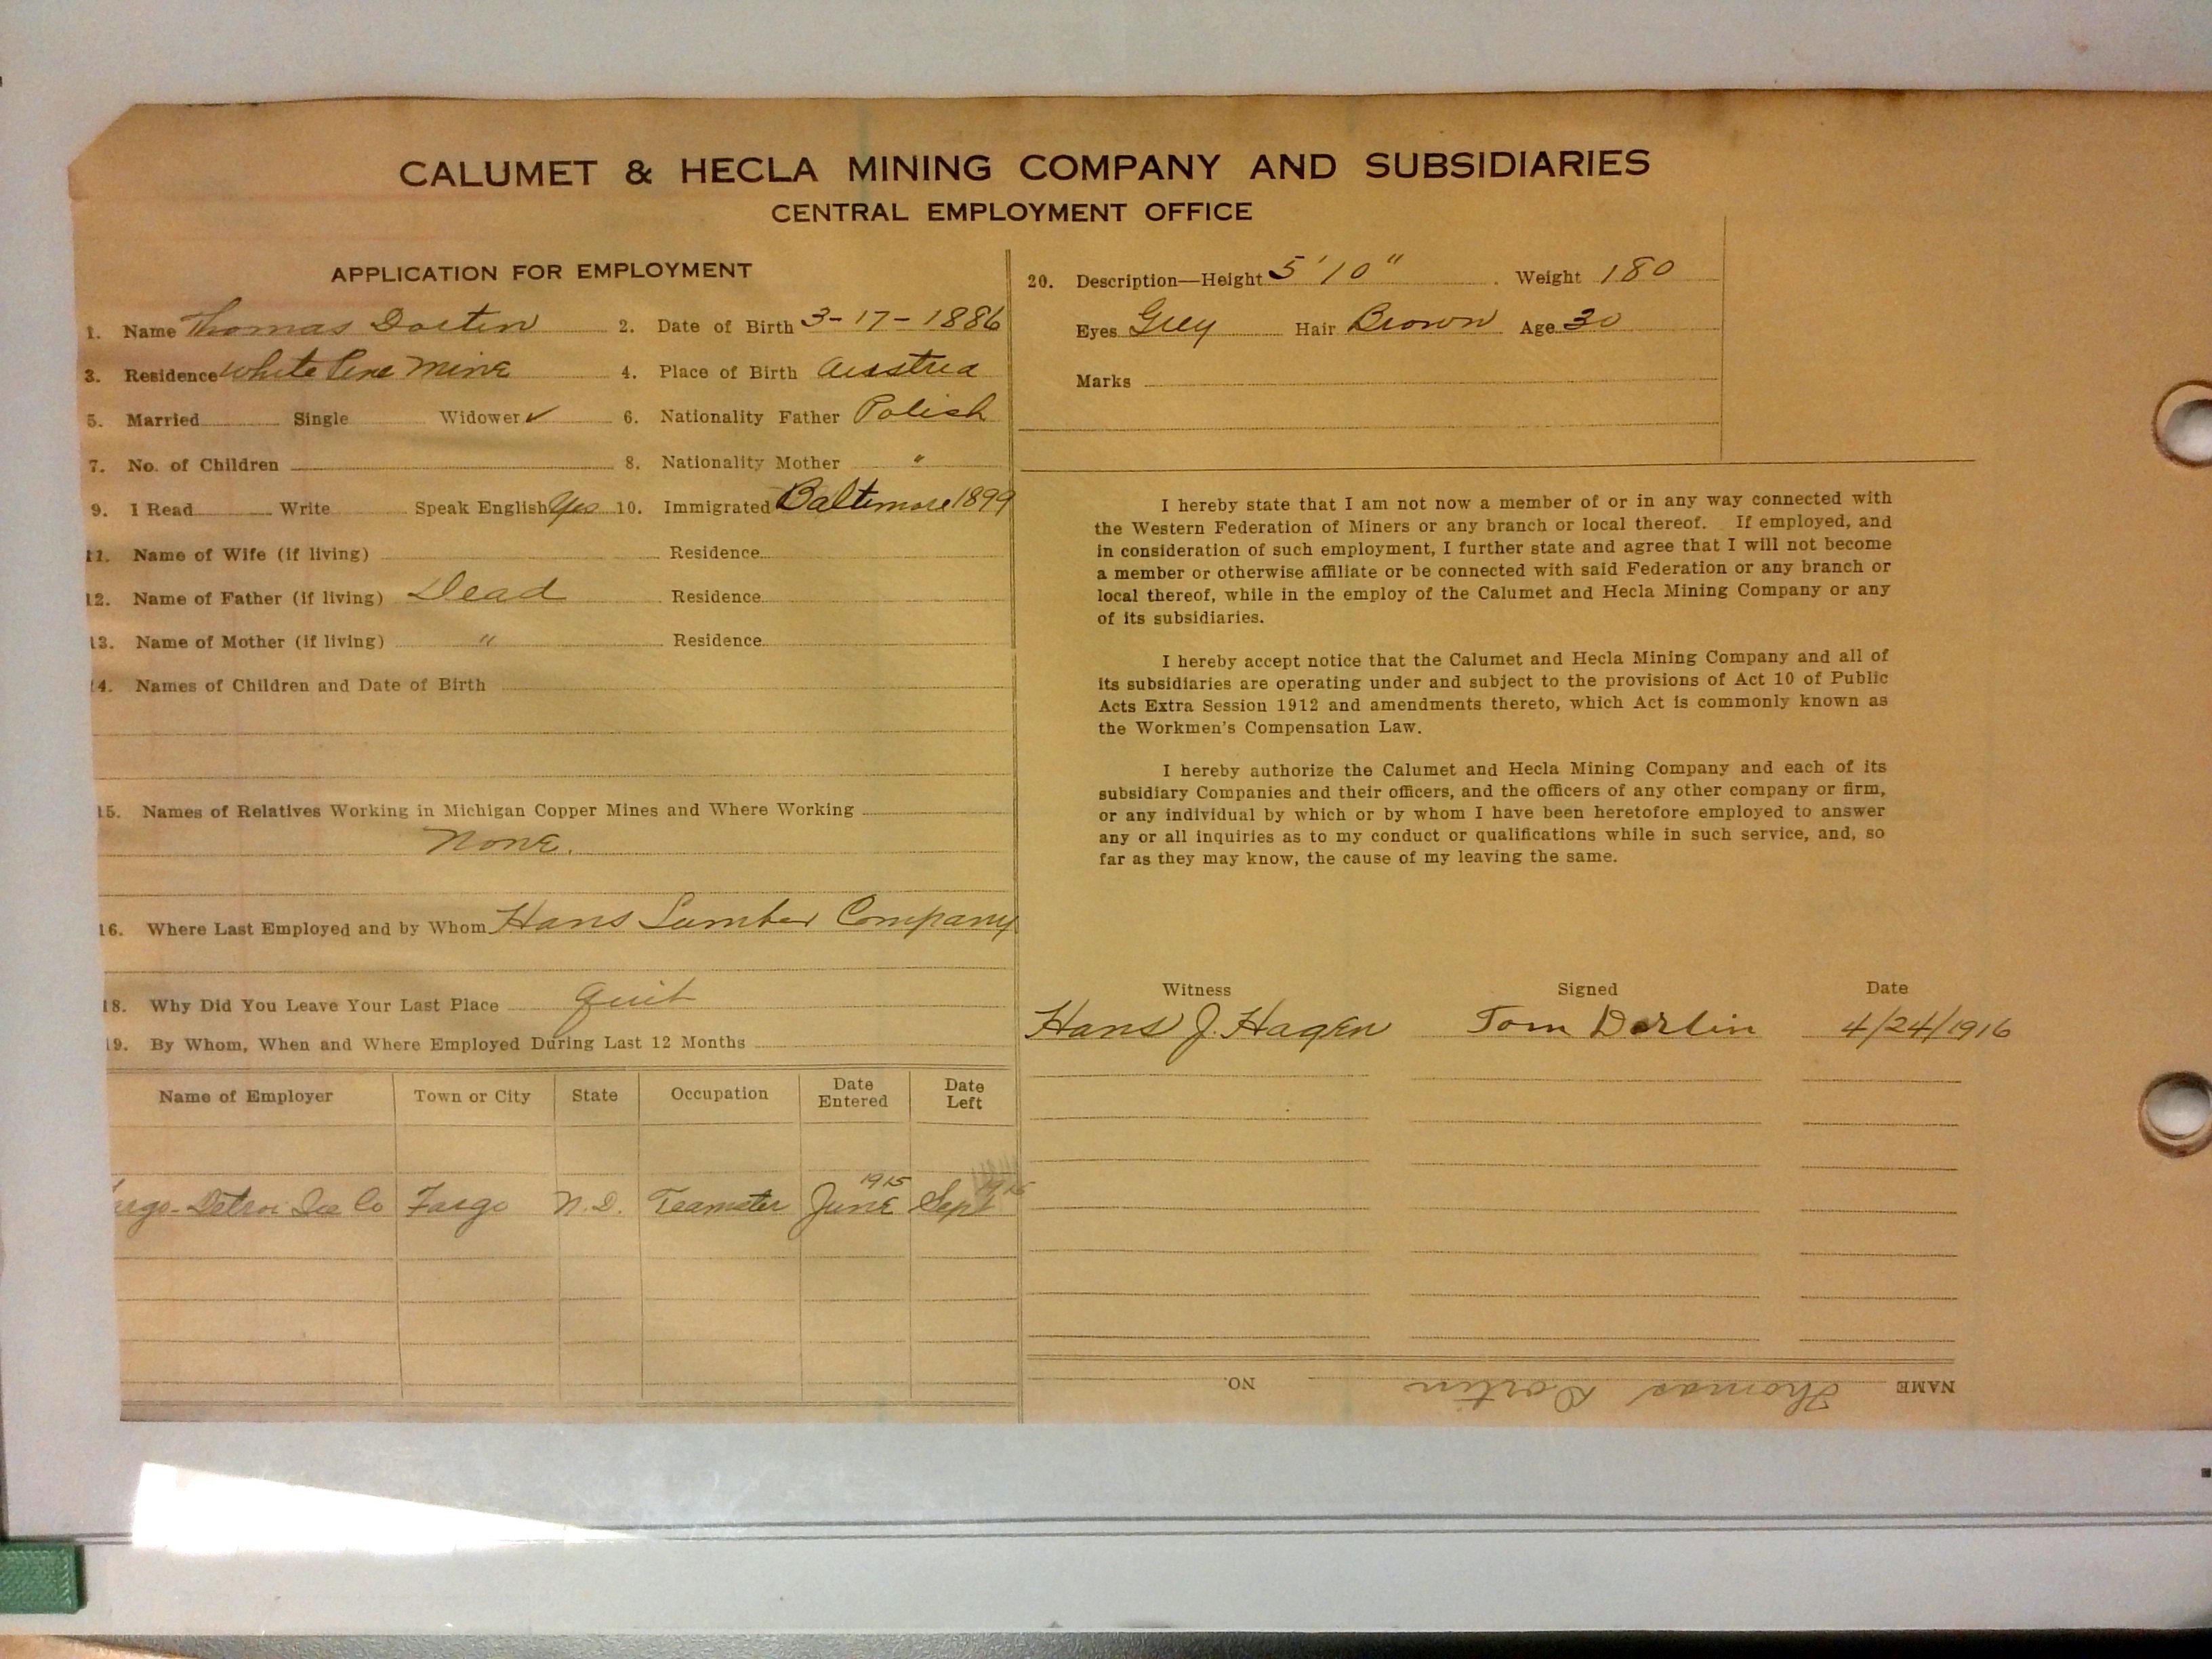 CALUMET & HECLA MINING COMPANY AND SUBSIDIARIES
CENTRAL EMPLOYMENT OFFICE
APPLICATION FOR EMPLOYMENT
1. Name Thomas Dortin 2. Date of Birth 3-17-1886
3. Residence White Pine Mine 4. Place of Birth Austria
5. Married Single Widower ✓ 6. Nationality Father Polish
7. No. of Children 8. Nationality Mother "
9. I Read Write Speak English Yes 10. Immigrated Baltimore 1899
11. Name of Wife (if living) Residence
12. Name of Father (if living) Dead Residence
13. Name of Mother (if living) " Residence
14. Names of Children and Date of Birth
15. Names of Relatives Working in Michigan Copper Mines and Where Working
None.
16. Where Last Employed and by Whom Hans Lumber Company
18. Why Did You Leave Your Last Place Quit
19. By Whom, When and Where Employed During Last 12 Months
Name of Employer Town or City State Occupation Date Entered Date Left
Fargo N.D. Teamster June 1915 Sept 1915
20. Description—Height 5'10" Weight 180
Eyes Grey Hair Brown Age 30
Marks
I hereby state that I am not now a member of or in any way connected with
the Western Federation of Miners or any branch or local thereof. If employed, and
in consideration of such employment, I further state and agree that I will not become
a member or otherwise affiliate or be connected with said Federation or any branch or
local thereof, while in the employ of the Calumet and Hecla Mining Company or any
of its subsidiaries.
I hereby accept notice that the Calumet and Hecla Mining Company and all of
its subsidiaries are operating under and subject to the provisions of Act 10 of Public
Acts Extra Session 1912 and amendments thereto, which Act is commonly known as
the Workmen's Compensation Law.
I hereby authorize the Calumet and Hecla Mining Company and each of its
subsidiary Companies and their officers, and the officers of any other company or firm,
or any individual by which or by whom I have been heretofore employed to answer
any or all inquiries as to my conduct or qualifications while in such service, and, so
far as they may know, the cause of my leaving the same.
Witness Signed Date
Hans J. Hagen Tom Dortin 4/24/1916
NAME Thomas Dortin NO.